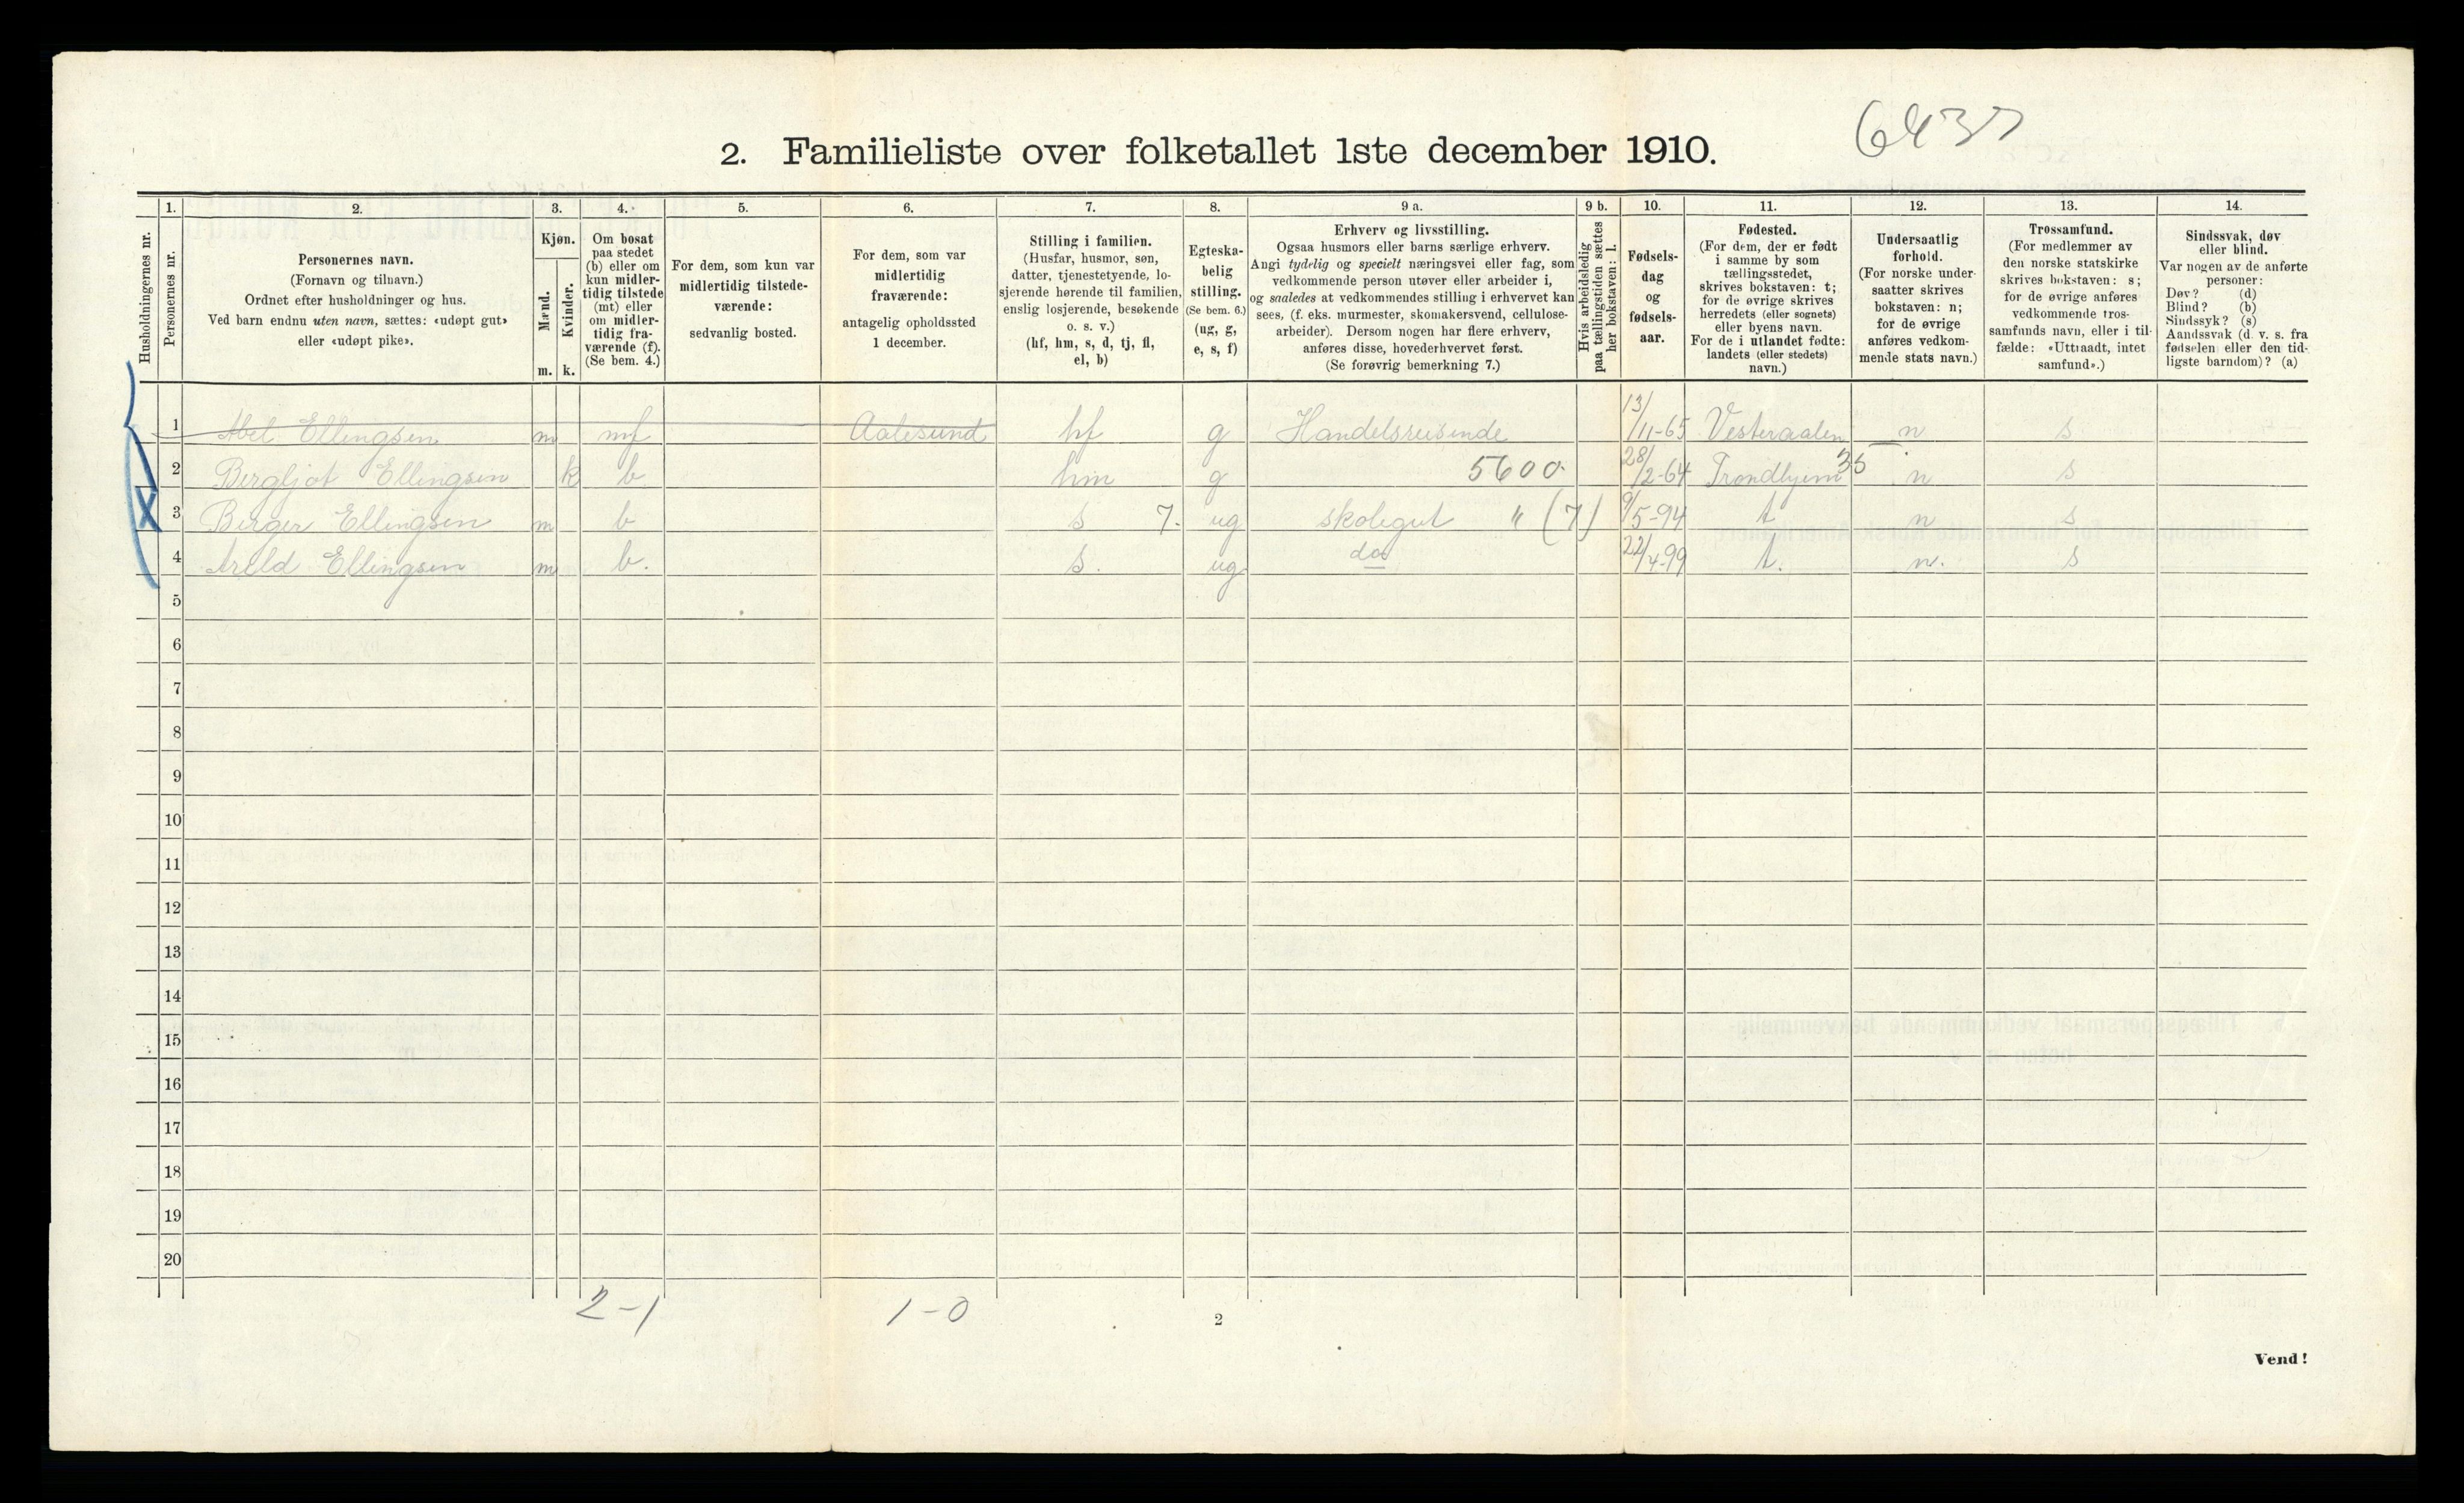 6437
2. Familieliste over folketallet 1ste december 1910.
Husholdningernes nr.
1.
Personernes nr.
2.
Personernes navn.
(Fornavn og tilnavn.)
Ordnet efter husholdninger og hus.
Ved barn endnu uten navn, sættes: «udøpt gut»
eller «udøpt pike».
3.
Kjøn.
Mænd.
Kvinder.
m. k.
4.
Om bosat
paa stedet
(b) eller om
kun midler-
tidig tilstede
(mt) eller
om midler-
tidig fra-
værende (f).
(Se bem. 4.)
5.
For dem, som kun var
midlertidig tilstede-
værende:
sedvanlig bosted.
6.
For dem, som var
midlertidig
fraværende:
antagelig opholdssted
1 december.
7.
Stilling i familien.
(Husfar, husmor, søn,
datter, tjenestetyende, lo-
sjerende hørende til familien,
enslig losjerende, besøkende
o. s. v.)
(hf, hm, s, d, tj, fl,
el, b)
8.
Egteska-
belig
stilling.
(Se bem. 6.)
(ug, g,
e, s, f)
9 a.
Erhverv og livsstilling.
Ogsaa husmors eller barns særlige erhverv.
Angi tydelig og specielt næringsvei eller fag, som
vedkommende person utøver eller arbeider i,
og saaledes at vedkommendes stilling i erhvervet kan
sees, (f. eks. murmester, skomakersvend, cellulose-
arbeider). Dersom nogen har flere erhverv,
anføres disse, hovederhvervet først.
(Se forøvrig bemerkning 7.)
9 b.
Hvis arbeidsledig
paa tællingstiden sættes
her bokstaven: l.
10.
Fødsels-
dag
og
fødsels-
aar.
11.
Fødested.
(For dem, der er født
i samme by som
tællingsstedet,
skrives bokstaven: t;
for de øvrige skrives
herredets (eller sognets)
eller byens navn.
For de i utlandet fødte:
landets (eller stedets)
navn.)
12.
Undersaatlig
forhold.
(For norske under-
saatter skrives
bokstaven: n;
for de øvrige
anføres vedkom-
mende stats navn.)
13.
Trossamfund.
(For medlemmer av
den norske statskirke
skrives bokstaven: s;
for de øvrige anføres
vedkommende tros-
samfunds navn, eller i til-
fælde: «Uttraadt, intet
samfund».)
14.
Sindssvak, døv
eller blind.
Var nogen av de anførte
personer:
Døv? (d)
Blind? (b)
Sindssyk? (s)
Aandssvak (d. v. s. fra
fødselen eller den tid-
ligste barndom)? (a)
1 Abel Ellingsen m mf Aalesund hf g Handelsreisende 13/11-65 Vesteraalen n s
2 Bergljot Ellingsen k b hm g 5600 28/2-64 Trondhjem 35 n s
X 3 Berger Ellingsen m b s 7. ug skolegut " (7) 9/5-94 t n s
4 Areld Ellingsen m b. s. ug do 22/4-99 t. n. s
5
6
7
8
9
10
11
12
13
14
15
16
17
18
19
20
2-1 1-0
2
Vend!